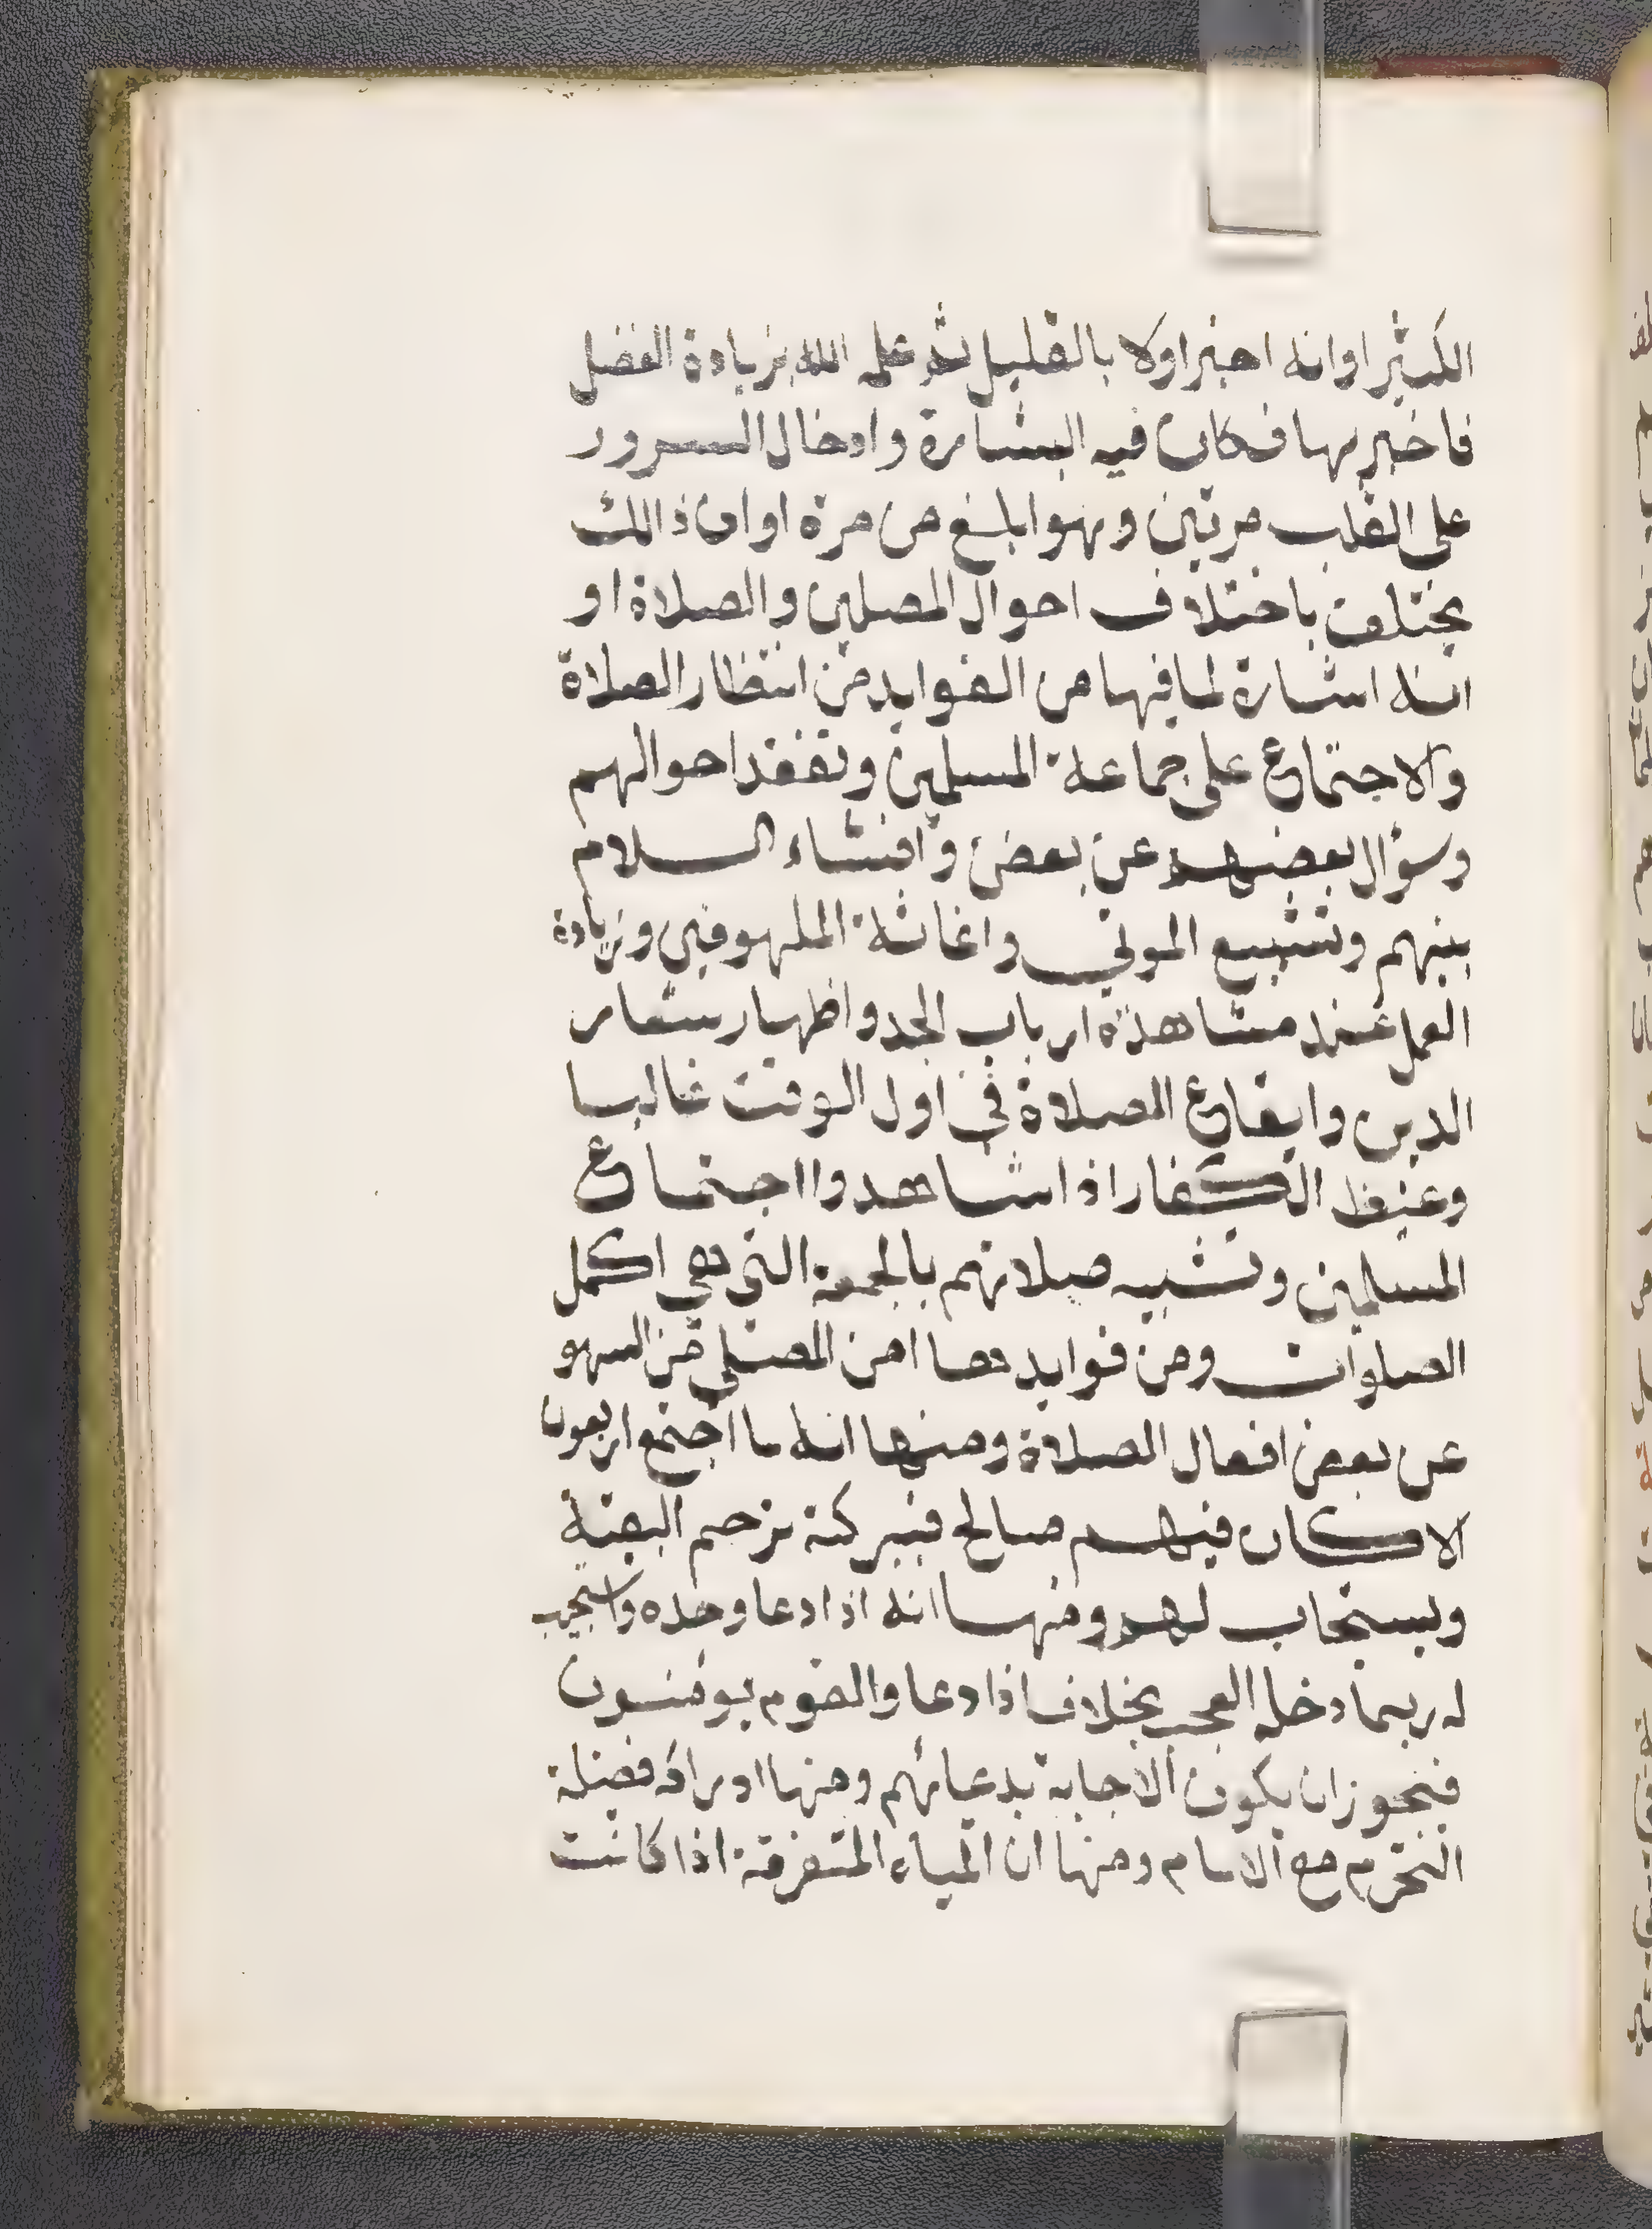 الكثير او انه اخبر اولا بالقليل ثم علمه الله بزيادة الفضل
فاخبر بها فكان فيه البشارة وادخال السرور
على القلب مرتين وهو ابلغ من مرة او ان ذالك
يختلف باختلاف احوال المصلين والصلاة او
انه اشارة لما فيها من الفوايد من انتظار الصلاة
والاجتماع على جماعة المسلمين وتفقد احوالهم
وسؤال بعضهم عن بعض وافشاء السلام
بينهم وتشييع الموتي واغاثة الملهوفين وزيادة
العمل عند مشاهدة ارباب الجد واظهار شعار
الدين وايقاع الصلاة في اول الوقت غالبا
وغيظ الكفار اذا شاهدوا اجتماع
المسلمين وتشبيه صلاتهم بالجمعة التي هي اكمل
الصلوات ومن فوايدها امن المصلي من السهو
عن بعض افعال الصلاة ومنها انه ما اجتمع اربعون
الا كان فيهم صالح فببركته يرحم البقية
ويستجاب لهم ومنها انه اذا دعا وحده واستجيب
له ربما دخله العجب بخلاف اذا دعا والقوم يومنون
فيجوز ان يكون الاجابة بدعائهم ومنها ادراك فضيلة
التحرم مع الامام ومنها ان المياه المتفرقة اذا كانت